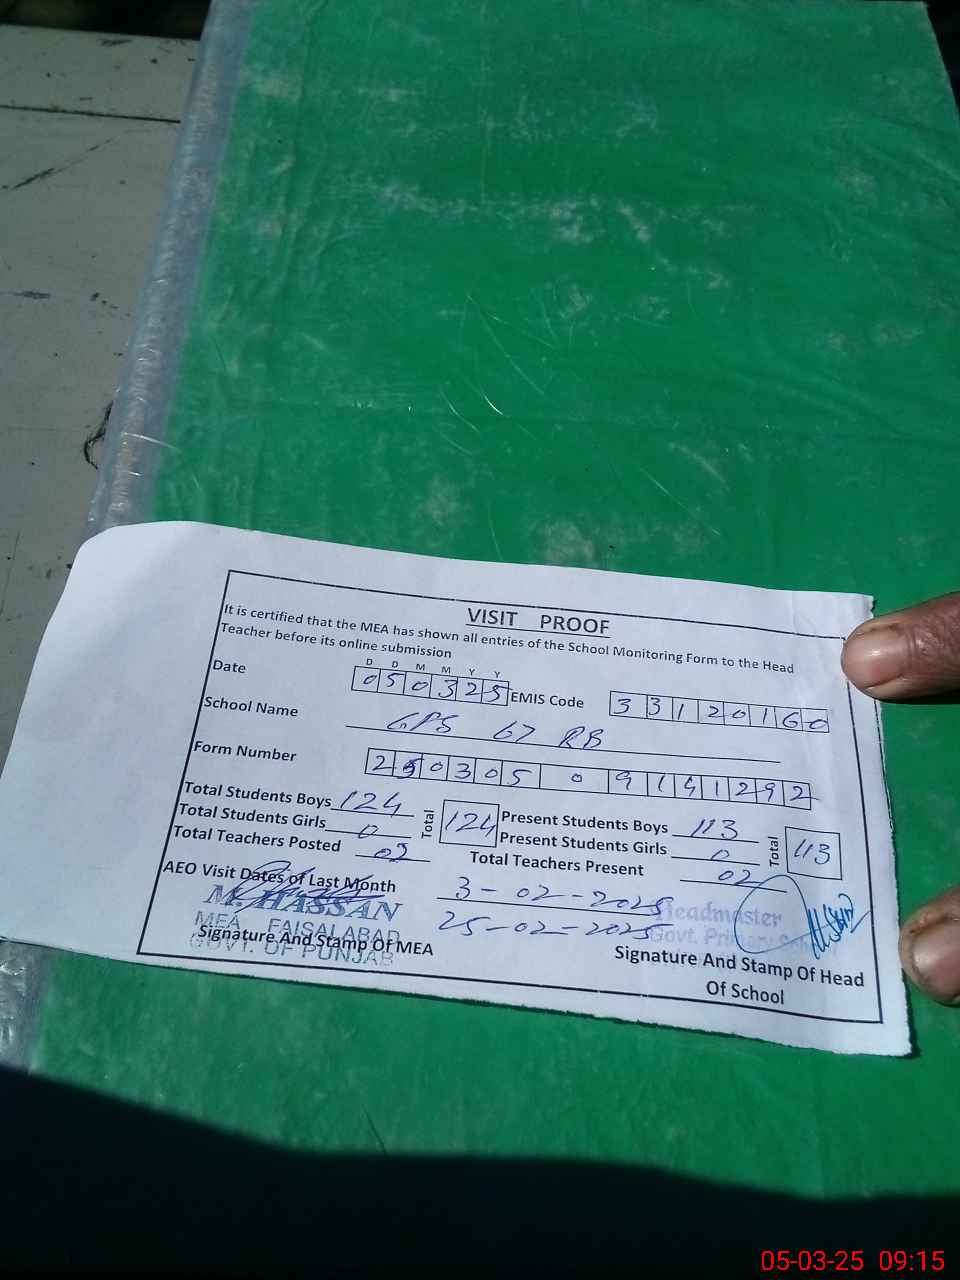 VISIT PROOF
It is certified that the MEA has shown all entries of the School Monitoring Form to the Head
Teacher before its online submission
D D M M Y Y
Date 050325 EMIS Code 33120160
School Name GPS 67 RB
Form Number 250305 0 9141292
Total Students Boys 124 Total 124 Present Students Boys 113 Total 113
Total Students Girls 0 Present Students Girls 0
Total Teachers Posted 02 Total Teachers Present 02
AEO Visit Dates of Last Month 3-02-2025
25-02-2025
M. HASSAN
MEA FAISALABAD
GOVT. OF PUNJAB
Signature And Stamp Of MEA
Headmaster
Govt. Primary
Signature And Stamp Of Head
Of School
05-03-25 09:15